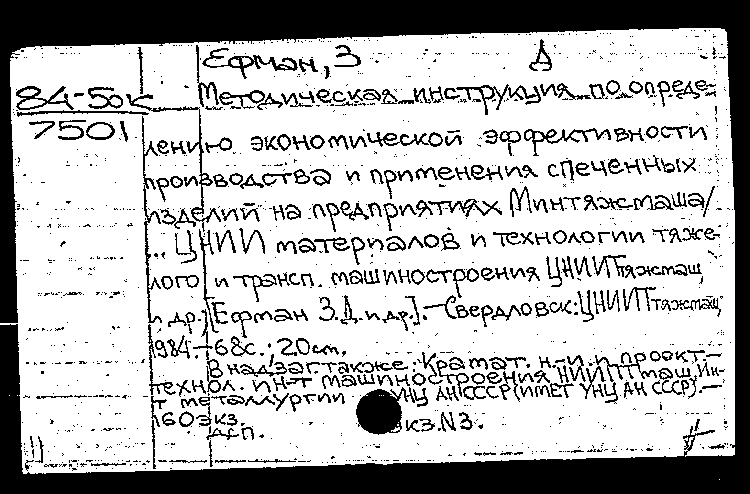 Ефман, З
Д
84-50к
7501
Методическая инструкция по опреде-
лению экономической эффективности
производства и применения спеченных
изделий на предприятиях Минтяжмаша/
... ЦНИИ материалов и технологии тяже-
лого и трансп. машиностроения ЦНИИТтяжмаш,
и др.; [Ефман З.Д. и др.]. - Свердловск: ЦНИИТтяжмаш,
1984. - 68с.; 20см.
В надзаг. также: Крамат. н.-и. и проект.-
технол. ин-т машиностроения НИИПТмаш, Ин-
т металлургии УНЦ АН СССР (ИМЕТ УНЦ АН СССР). -
160экз.
Экз.N3.
дсп.